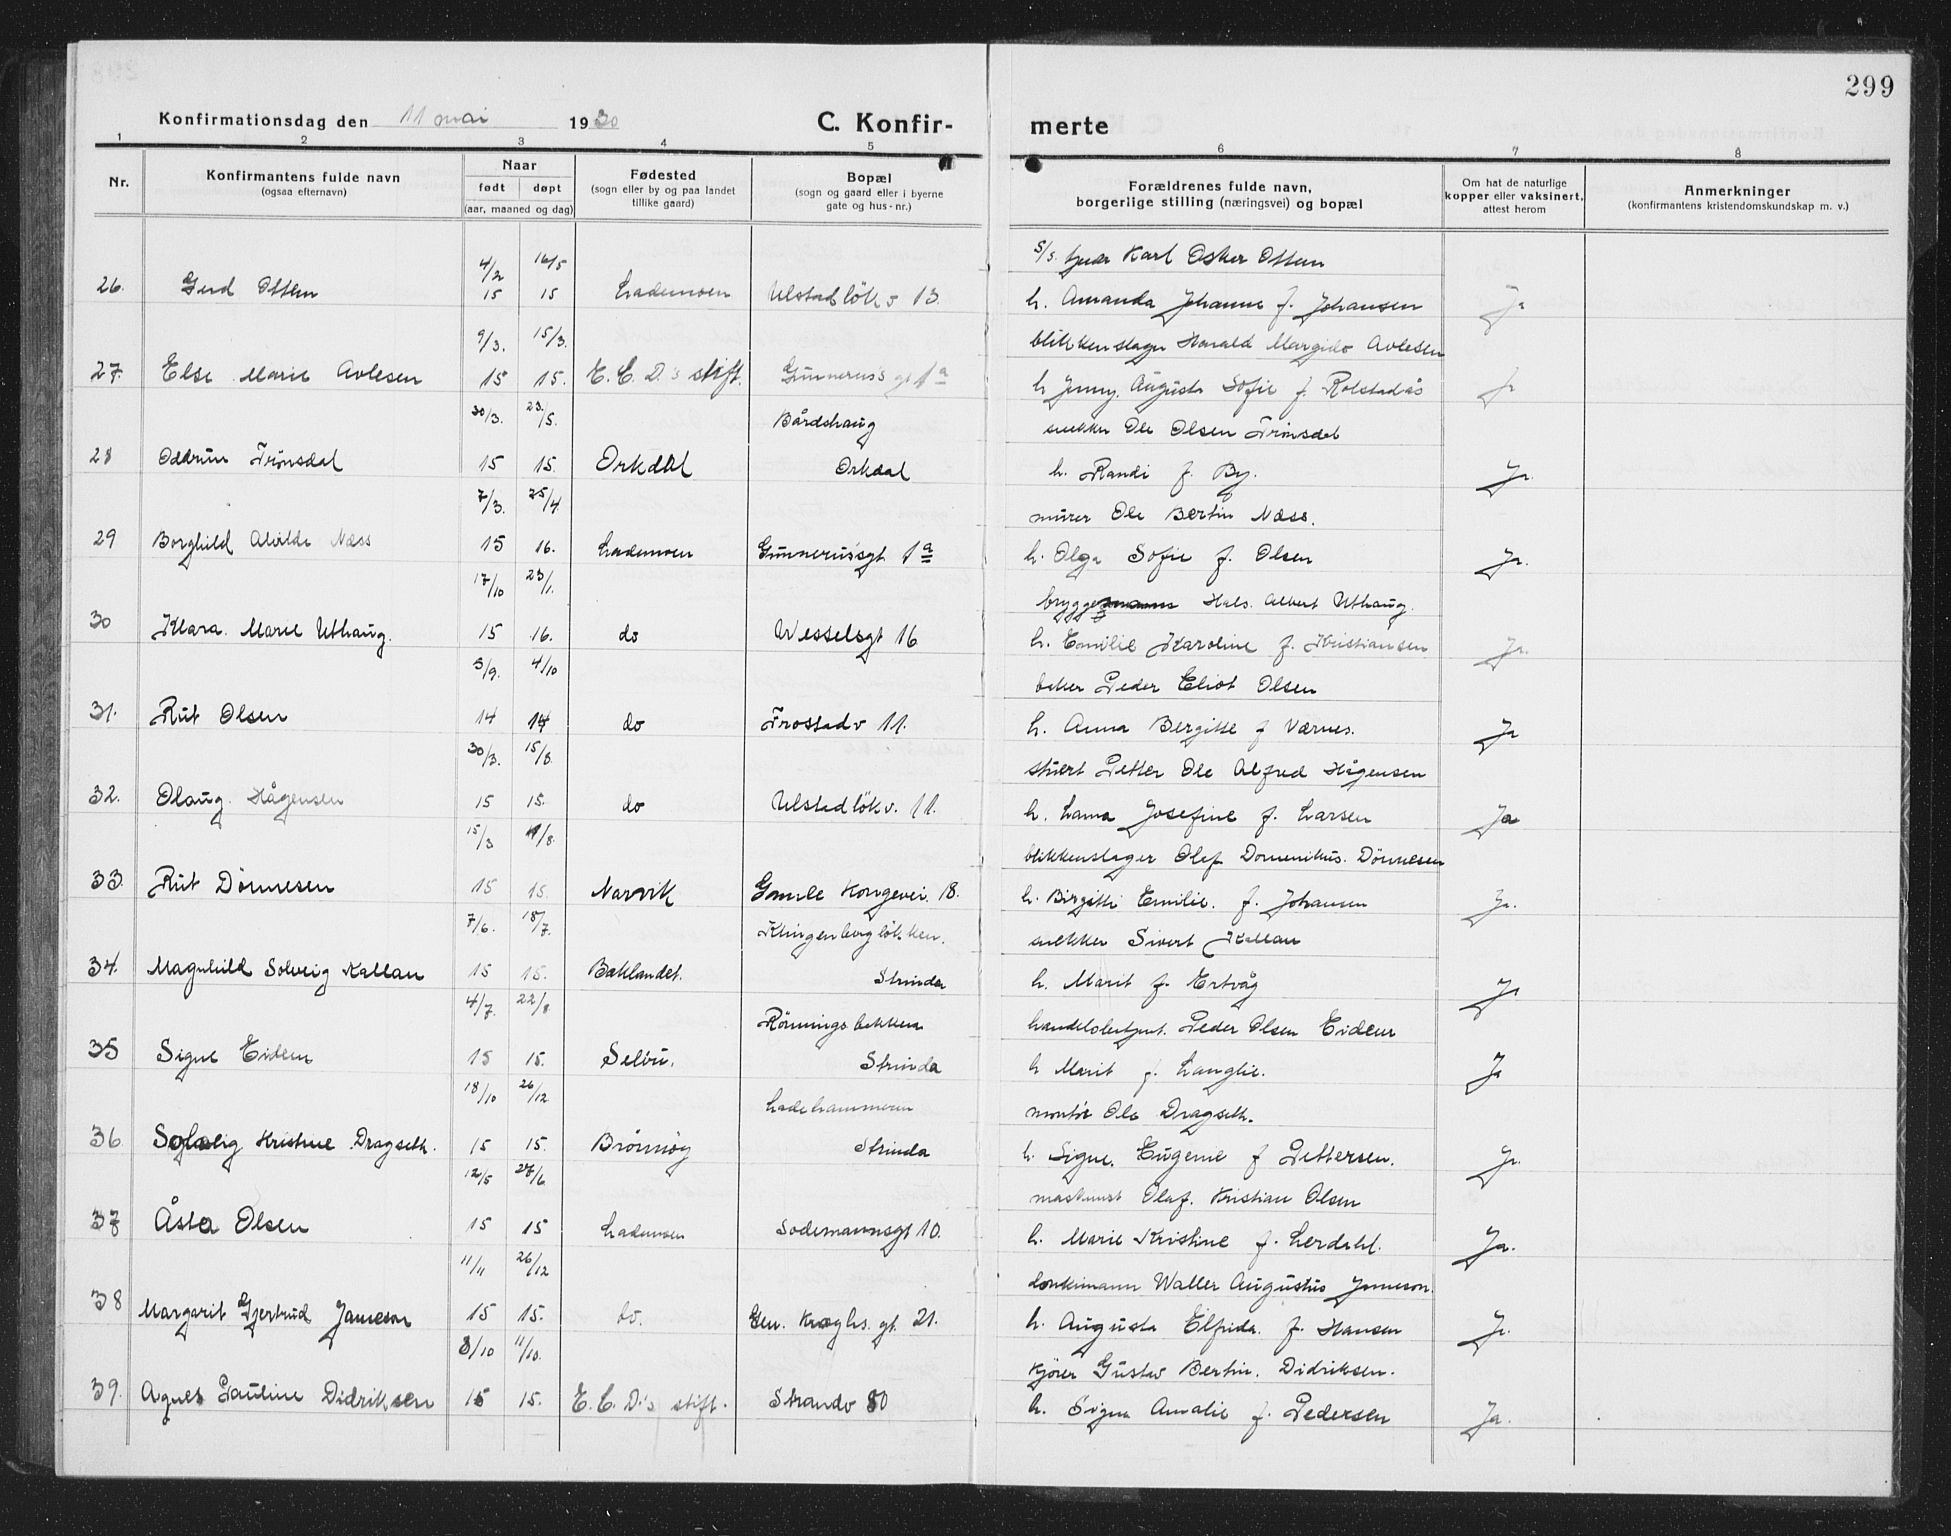 299
Konfirmationsdag den 11 mai 1930
C. Konfir-
merte
1 2 3 4 5 6 7 8
Nr.
Konfirmantens fulde navn
(ogsaa efternavn)
Naar
født døpt
(aar, maaned og dag)
Fødested
(sogn eller by og paa landet
tillike gaard)
Bopæl
(sogn og gaard eller i byerne
gate og hus-nr.)
Forældrenes fulde navn,
borgerlige stilling (næringsvei) og bopæl
Om hat de naturlige
kopper eller vaksinert,
attest herom
Anmerkninger
(konfirmantens kristendomskundskap m. v.)
4/2 16/5 Karl Oskar Ottem
26. Gerd Ottem 15 15 Lademoen Ulstadløkv 13. h. Amanda Johanne f. Johansen Ja
9/3. 15/3. blikkenslager Harald Margido Avlesen
27. Else Marie Avlesen 15 15. E. C. D.'s stift. Gunnerus's gt 1a h Jenny Augusta Sofie f. Rolstadås Ja
30/3. 23/5. Bårdshaug snekker Ole Olsen Trønsdal
28 Oddrun Trønsdal 15 15. Orkdal Orkdal h. Randi f. By. Ja.
7/3. 25/4 murer Ole Bertin Næss.
29 Borghild Alvilde Næss 15 16. Lademoen Gunnerus'sgt 1a h. Olga Sofie f. Olsen Ja.
17/10 23/1. brygge Hals. Albert Uthaug.
30 Klara Marie Uthaug. 15 16. do Wesselsgt 16 h. Emilie Karoline f. Kristiansen Ja.
5/9. 4/10 baker Peder Eliot Olsen
31. Rut Olsen 14 14 do Frostadv 11. h. Anna Bergitte f Værnes. Ja
30/3. 15/8. stuert Petter Ole Alfred Hågensen
32. Olaug Hågensen 15 15. do Ulstadløkv. 11. h. Laura Josefine f. Larsen Ja
15/3 /8. blikkenslager Olaf Domenikus. Dønnesen
33. Rut Dønnesen 15 15. Narvik Gamle Kongevei. 18. h. Birgitte Emilie. f. Johansen Ja.
7/6. 18/7. Klingenbergløkken. snekker Sivert Kallan
34. Magnhild Solveig Kallan 15 15. Baklandet. Strinda h. Marit f. Ertvåg Ja
4/7. 22/8 Rønningsbakken handelsbetjent. Peder Olsen Eidem
35 Signe Eidem 15 15. Selbu. Strinda h Marit f. Langlie. Ja
18/10 26/12 Ladehammeren montør Ole Dragseth.
36 Solveig Kristine Dragseth. 15 15. Brønnøy Strinda h. Signe. Eugenie f Pettersen. Ja.
12/5 27/6 maskinist Olaf. Kristian Olsen
37 Åsta Olsen 15 15 Lademoen Sodemannsgt 10. h. Marie Kristine f. Lerdahl. Ja.
11/11 26/12 Walter Augustus Jameson.
38 Margarit Gjertrud Jameson 15 15. do. Gen. Kroghs. gt. 21. h. Augusta Elfrida. f. Hansen Ja.
8/10 11/10. kjører Gustav Bertin. Didriksen.
39. Agnes Pauline Didriksen 15 15. E. C. D.'s stift. Strandv 80 h. Signe Amalie f. Pedersen Ja.